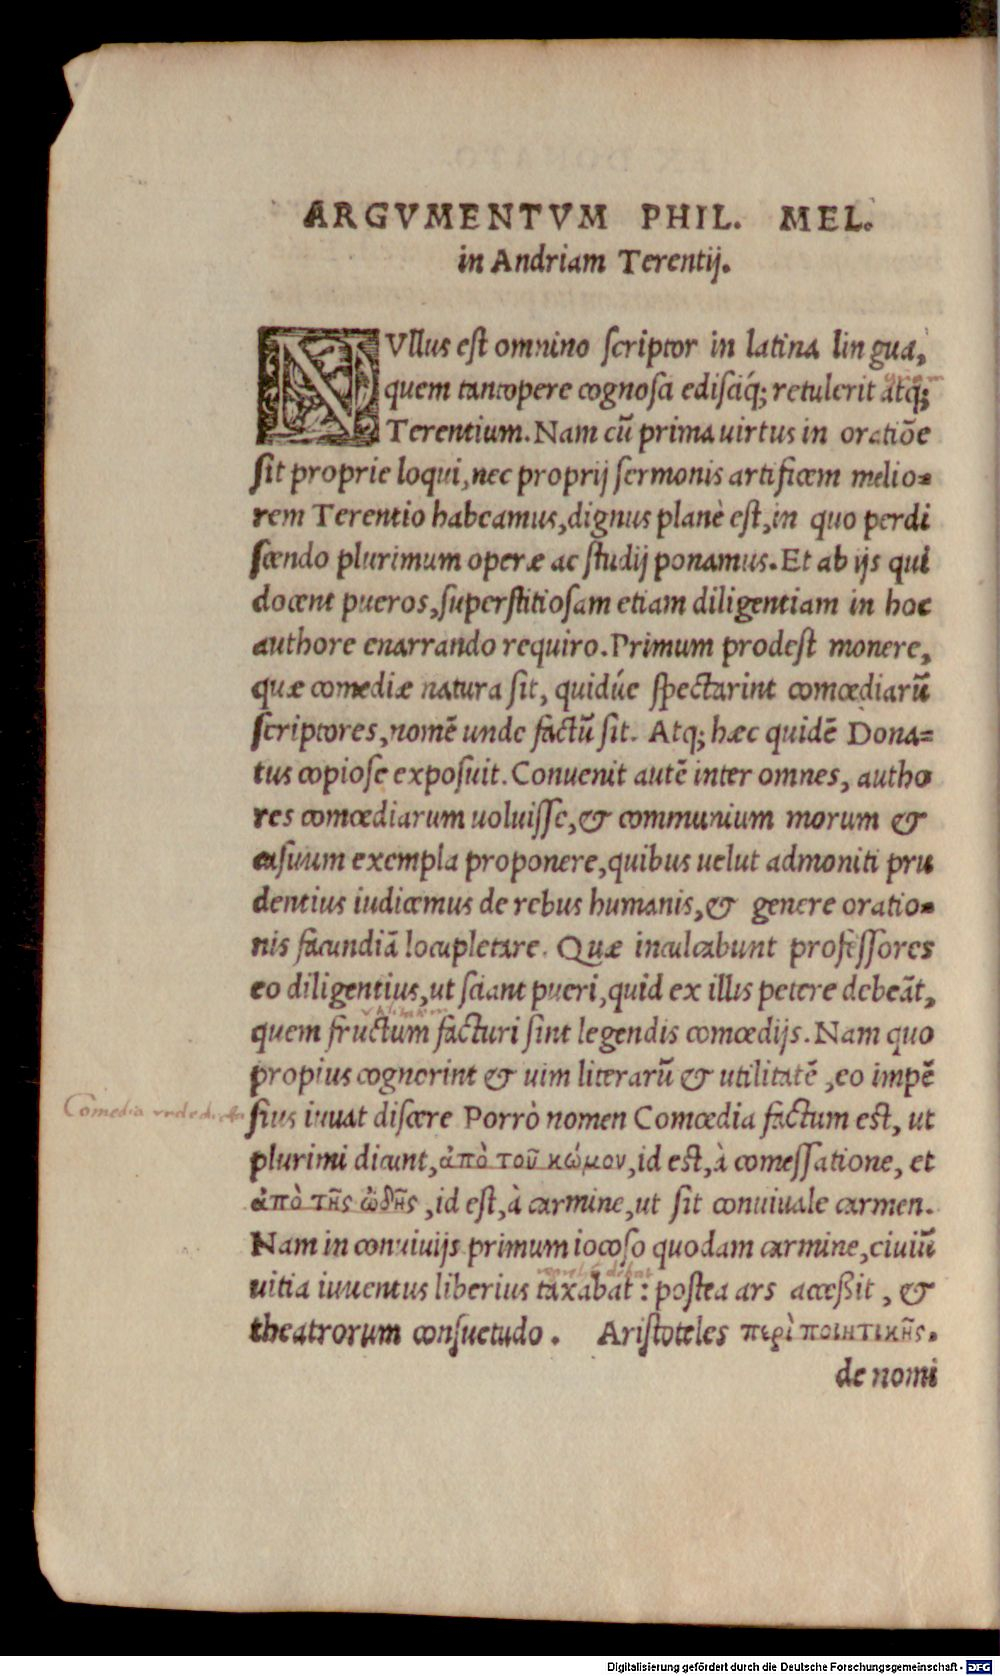 ARGVMENTVM PHIL. MEL.
in Andriam Terentij.
NVllus est omnino scriptor in latina lingua,
quem tantopere cognosci edisciq́; retulerit atq;
Terentium. Nam cū prima uirtus in oratiōe
sit proprie loqui, nec proprij sermonis artificem melio=
rem Terentio habeamus, dignus planè est, in quo perdi
scendo plurimum operæ ac studij ponamus. Et ab ijs qui
docent pueros, superstitiosam etiam diligentiam in hoc
authore enarrando requiro. Primum prodest monere,
quæ comediæ natura sit, quidúe spectarint comœdiarū
scriptores, nomē unde factū sit. Atq; hæc quidē Dona=
tus copiose exposuit. Conuenit autē inter omnes, autho
res comœdiarum uoluisse, & communium morum &
casuum exempla proponere, quibus uelut admoniti pru
dentius iudicemus de rebus humanis, & genere oratio=
nis facundiā locupletare. Quæ inculcabunt professores
eo diligentius, ut sciant pueri, quid ex illis petere debeāt,
quem fructum facturi sint legendis comœdijs. Nam quo
propius cognorint & uim literarū & utilitatē, eo impē
Comedia vnde dicta
sius iuuat discere Porrò nomen Comœdia factum est, ut
plurimi dicunt, ἀπὸ τοῦ κώμου, id est, à comessatione, et
ἀπὸ τῆς ᾠδῆς, id est, à carmine, ut sit conuiuale carmen.
Nam in conuiuijs primum iocoso quodam carmine, ciuiū
uitia iuuentus liberius taxabat: postea ars accessit, &
theatrorum consuetudo. Aristoteles περὶ ποιητικῆς.
de nomi
Digitalisierung gefördert durch die Deutsche Forschungsgemeinschaft - DFG